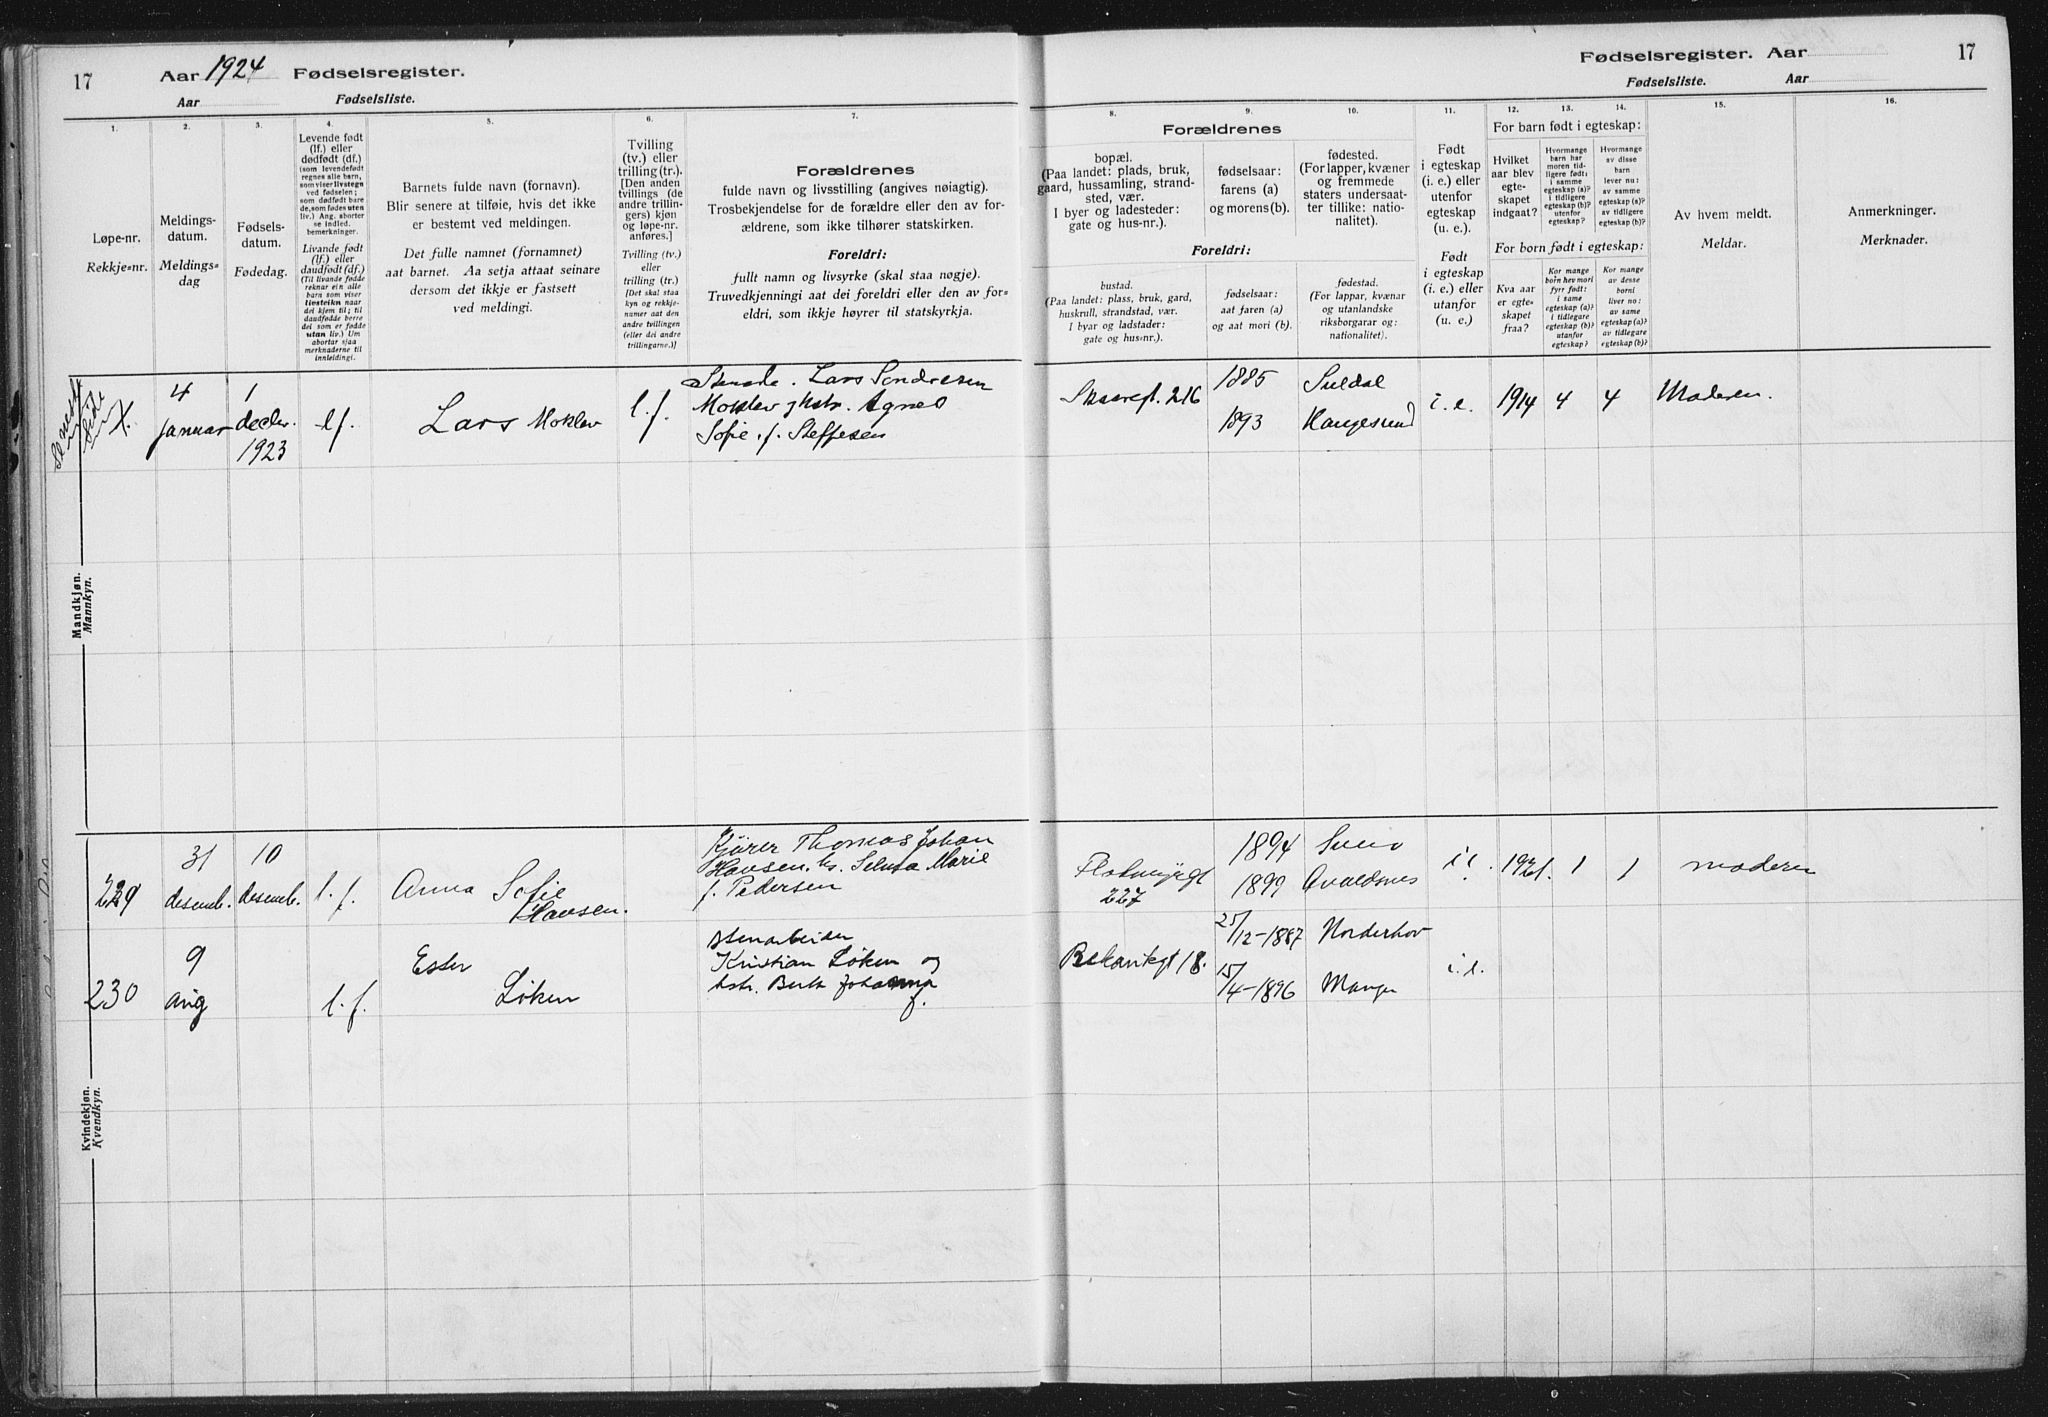 17
Aar 1924 Fødselsregister.
Aar Fødselsliste.
Fødselsregister. Aar
17
Fødselsliste. Aar
1.
2.
3.
4.
5.
6.
7.
8.
9.
10.
11.
12.
13.
14.
15.
16.
Løpe-nr.
Rekkje=nr.
Meldings-
datum.
Meldings=
dag
Fødsels-
datum.
Fødedag.
Levende født
(lf.) eller
dødfødt (df.)
(som levendefødt
regnes alle barn,
som viser livstegn
ved fødselen;
som dødfødt bare
de, som fødes uten
liv.) Ang. aborter
se indled.
bemerkninger.
Livande født
(lf.) eller
daudfødt (df.)
(Til livande fødde
reknar ein alle
barn som viser
livsteikn naar
dei kjem til; til
daudfødde berre
dei som er fødde
utan liv.) Um
abortar sjaa
merknaderne til
innleidingi.
Barnets fulde navn (fornavn).
Blir senere at tilføie, hvis det ikke
er bestemt ved meldingen.
Det fulle namnet (fornamnet)
aat barnet. Aa setja attaat seinare
dersom det ikkje er fastsett
ved meldingi.
Tvilling
(tv.) eller
trilling (tr.).
[Den anden
tvillings (de
andre trillin-
gers) kjøn
og løpe-nr.
anføres.]
Tvilling (tv.)
eller
trilling (tr.)
[Det skal staa
kyn og rekkje-
numer aat den
andre tvillingen
(eller dei andre
trillingarne.)]
Forældrenes
fulde navn og livsstilling (angives nøiagtig).
Trosbekjendelse for de forældre eller den av for-
ældrene, som ikke tilhører statskirken.
Foreldri:
fullt namn og livsyrke (skal staa nøgje).
Truvedkjenningi aat dei foreldri eller den av for=
eldri, som ikkje høyrer til statskyrkja.
Forældrenes
bopæl.
(Paa landet: plads, bruk,
gaard, hussamling, strand-
sted, vær.
I byer og ladesteder:
gate og hus-nr.).
fødselsaar:
farens (a)
og morens (b).
fødested.
(For lapper, kvæner
og fremmede
staters undersaat-
ter tillike: natio-
nalitet).
Foreldri:
bustad.
(Paa landet: plass, bruk, gard,
huskrull, strandstad, vær.
I byar og ladstader:
gate og hus=nr.).
fødselsaar:
aat faren (a)
og aat mori (b).
fødestad.
(For lappar, kvænar
og utanlandske
riksborgarar og:
nationalitet).
Født
i egteskap
(i. e.) eller
utenfor
egteskap
(u. e.).
Født
i egteskap
(i. e.) eller
utanfor
(u. e.)
For barn født i egteskap:
Hvilket
aar blev
egte-
skapet
indgaat?
Hvormange
barn har
moren tid-
ligere født:
i samme
egteskap (a)?
i tidligere
egteskap (b)?
utenfor
egteskap?
Hvormange
av disse
barn
lever nu:
av samme
egteskap (a)?
av tidligere
egteskap (b)?
For born født i egteskap:
Kva aar
er egte-
skapet
fraa?
Kor mange
born hev mori
fyrr født:
i same
egteskap (a)?
i tidlegare
egteskap (b)?
utanfor
egteskap?
Kor mange
av desse
borni
liver no:
av same
egteskap (a)?
av tidlegare
egteskap (b)?
Av hvem meldt.
Meldar.
Anmerkninger.
Merknader.
Mandkjøn.
Mannkyn.
Se neste
Side
4
januar
1
decbr.
1923
lf.
Lars Moklev
l.f.
Lars Sondresen
Moklev Hstr. Agnes
Sofie f. Steffesen
216
1885
1893
Suldal
Haugesund
i. e.
1914
4
4
Moderen.
229
31
desemb.
10
desemb.
l. f.
Anna Sofie
Hansen.
Kjører Thomas Johan
Hansen. hs. Selma Marie
f. Pedersen
Flotmyrgt
227
1894
1899
Sveio
Avaldsnes
i.e.
1921.
1
1
moderen
230
9
aug
l. f.
Ester
Løken
stenarbeider
Kristian Løken og
hstr. Berta Johanna
f.
18.
25/12-1887
15/4-1896
Norderhov
Manger
i. e.
Kvindekjøn.
Kvendkyn.